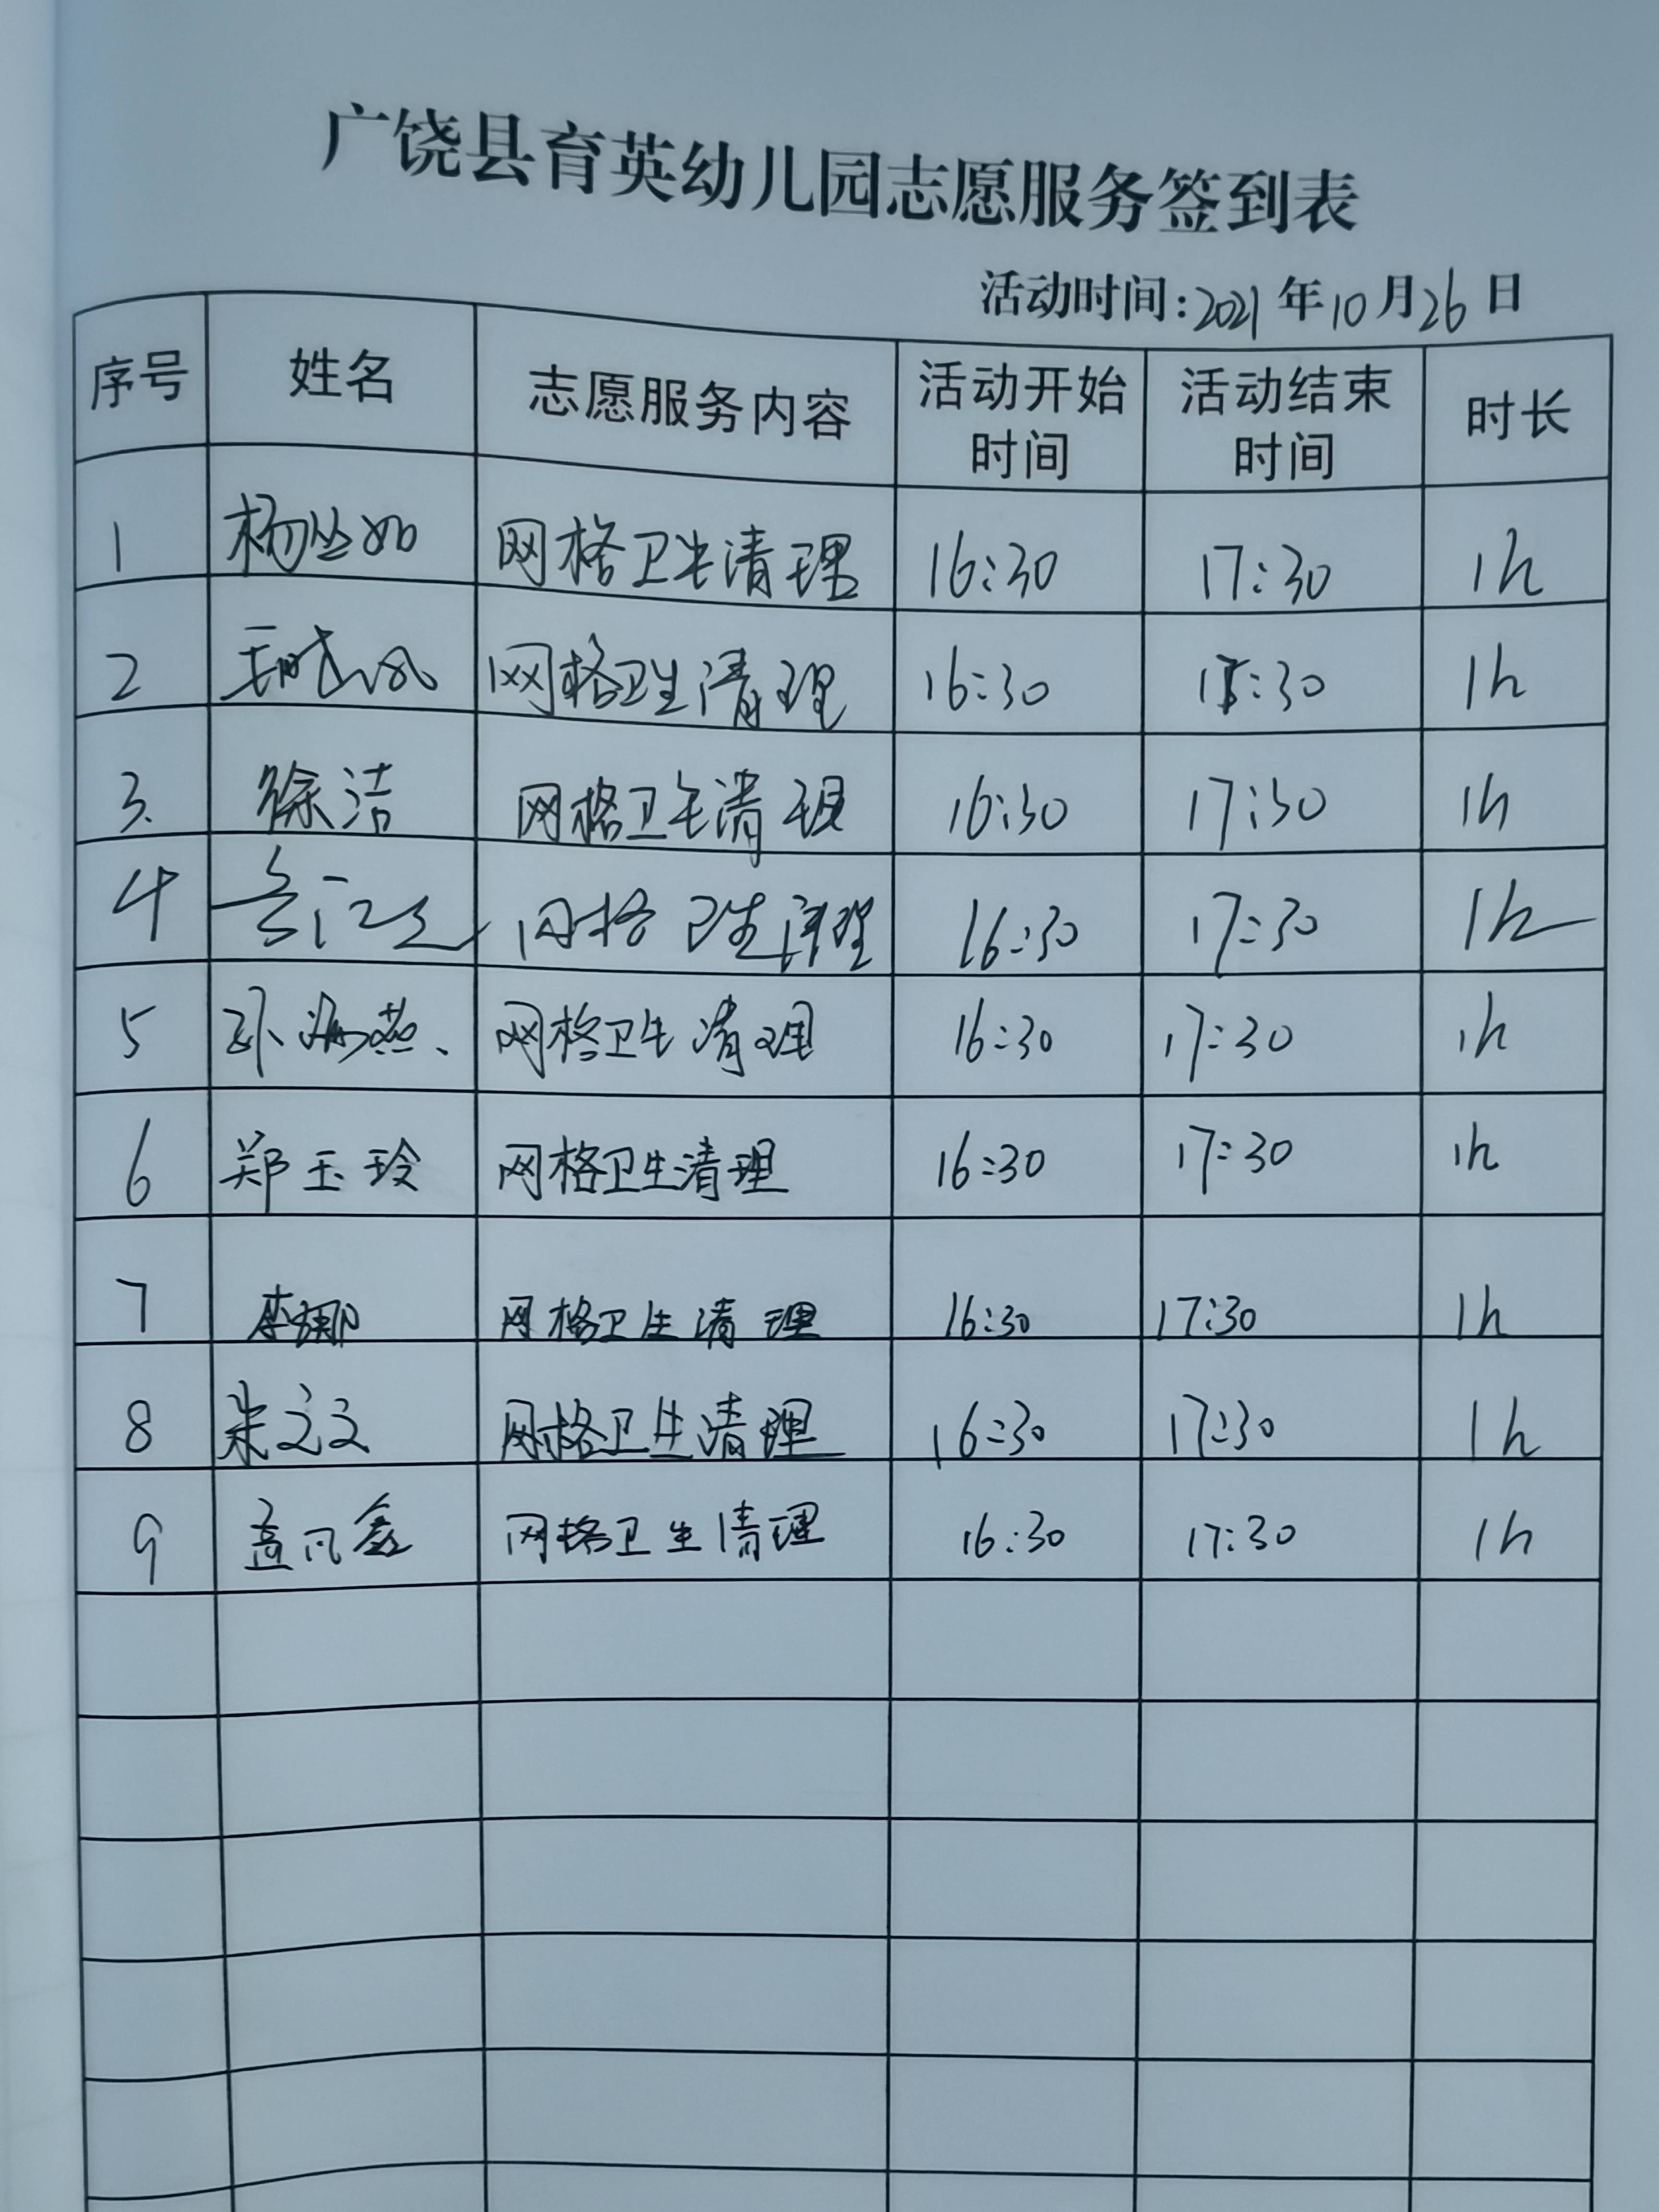 广饶县育英幼儿园志愿服务签到表
活动时间:2021年10月26日
序号 姓名 志愿服务内容 活动开始时间 活动结束时间 时长
1 杨丛如 网格卫生清理 16:30 17:30 1h
2 网格卫生清理 16:30 :30 1h
3. 徐洁 网格卫生清理 16:30 17:30 1h
4 网格卫生清理 16:30 17:30 1h
5 孙海燕、 网格卫生清理 16:30 17:30 1h
6 郑玉玲 网格卫生清理 16:30 17:30 1h
7 李娜 网格卫生清理 16:30 17:30 1h
8 朱文文 网格卫生清理 16:30 17:30 1h
9 孟凡鑫 网格卫生清理 16:30 17:30 1h